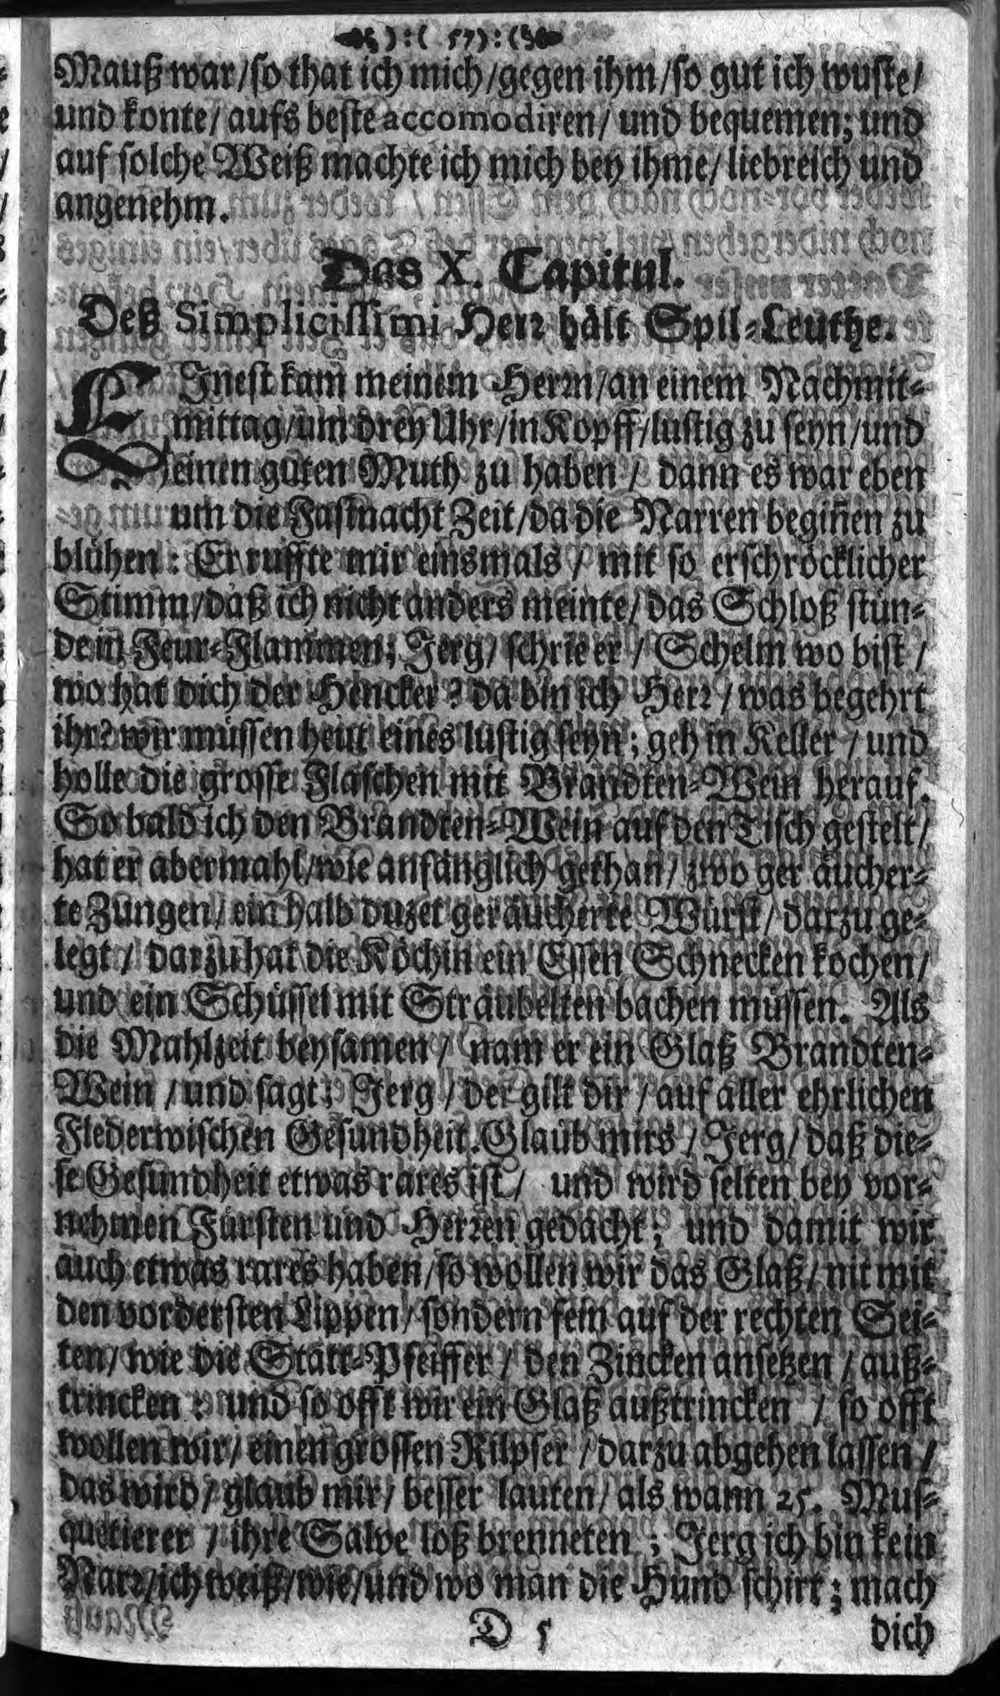 ):( 57 ):(
Mauß war/so that ich mich/gegen ihm/so gut ich wuste/
und konte/ aufs beste accomodiren/ und bequemen; und
auf solche Weiß machte ich mich bey ihme/ liebreich und
angenehm.
Das X. Capitul.
Deß Simplicissimi Herr hält Spil-Leuthe.
EInest kam meinem Herrn/an einem Nachmit-
mittag/um drey Uhr/in Kopff/lustig zu seyn/und
einen guten Muth zu haben / dann es war eben
um die Fastnacht Zeit/da die Narren begiñen zu
blühen: Er ruffte mir einsmals / mit so erschröcklicher
Stimm/daß ich nicht anders meinte/das Schloß stün-
de in Feur-Flammen; Jerg/ schrie er / Schelm wo bist /
wo hat dich der Hencker? da bin ich Herr / was begehrt
ihr? wir müssen heut eines lustig seyn; geh in Keller / und
holle die grosse Flaschen mit Brandten-Wein herauf.
So bald ich den Brandten-Wein auf den Tisch gestelt/
hat er abermahl/wie anfänglich gethan/ zwo geräucher-
te Zungen/ ein halb duzet geräucherte Würst/ darzu ge-
legt / darzu hat die Köchin ein Essen Schnecken kochen/
und ein Schüssel mit Sträubelten bachen müssen. Als
die Mahlzeit beysamen / nam er ein Glaß Brandten-
Wein / und sagt: Jerg / der gilt dir / auf aller ehrlichen
Flederwischen Gesundheit. Glaub mirs / Jerg/ daß die-
se Gesundheit etwas rares ist / und wird selten bey vor-
nehmen Fürsten und Herren gedacht; und damit wir
auch etwas rares haben/so wollen wir das Glaß/ nit mit
den vordersten Lippen/ sondern fein auf der rechten Sei-
ten/ wie die Statt-Pfeiffer / den Zincken ansetzen / auß-
trincken : und so offt wir ein Glaß außtrincken / so offt
wollen wir/ einen grossen Rilpser / darzu abgehen lassen /
das wird / glaub mir/ besser lauten/ als wann 25. Mus-
quetierer / ihre Salve loß brenneten ; Jerg ich bin kein
Narr/ich weiß/wie/und wo man die Hund schirt; mach
D 5 dich